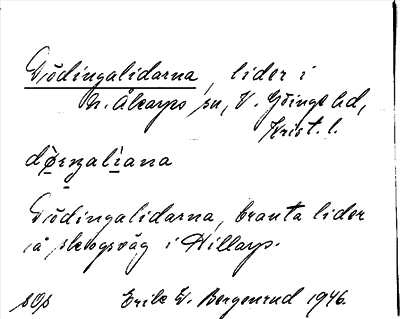 Dödingalidarna, lider i
N. Åkarps sn, V. Göinge hd,
Krist. l.
Dödingalidarna, branta lider
på skogsväg i Hillarp.
Erik W. Bergenrud 1946.